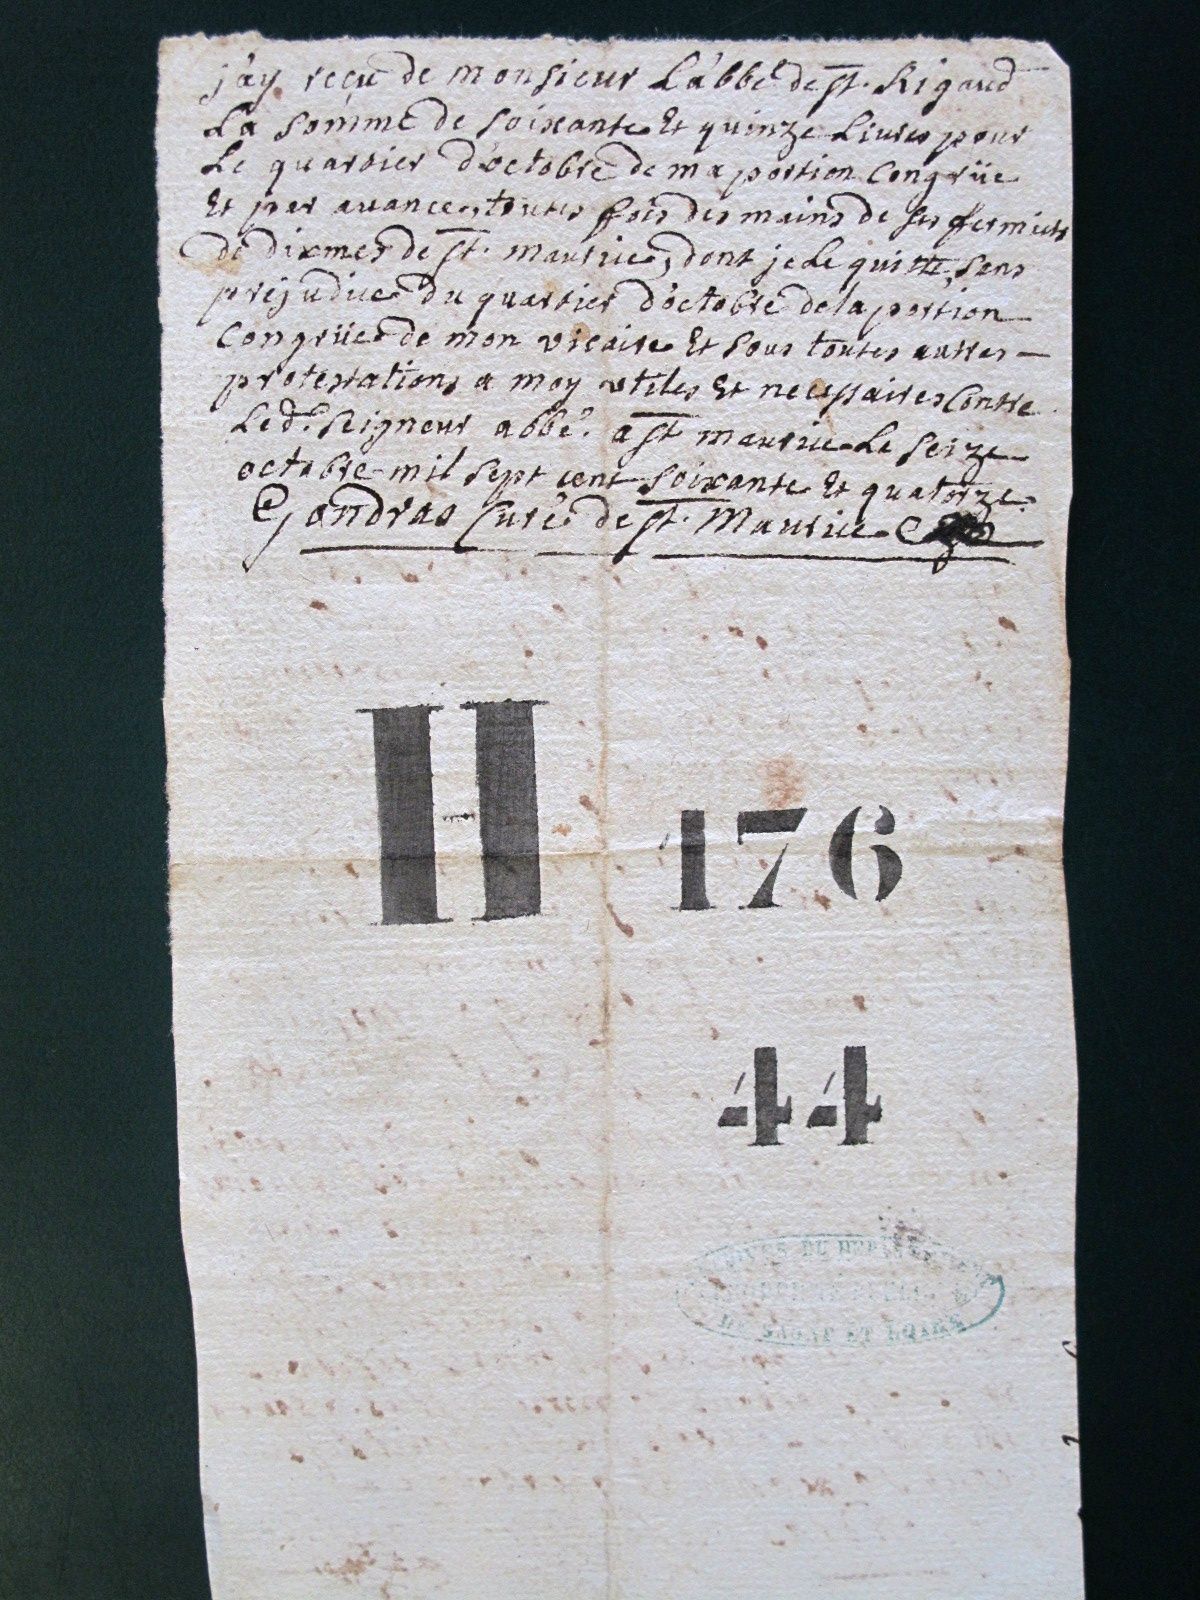 j'ay reçu de monsieur L'abbé de st. Rigaud
La somme de soixante Et quinze Livres pour
Le quartier d'octobre de ma portion Congrüe
Et par avance, toutes fois des mains de ses fermiers
de dixmes de st. maurice, dont je Le quitte, sans
prejudice du quartier d'octobre de la portion
Congrüe de mon vicaire Et sous toutes autres
protestations a moy utiles Et necessaires Contre
Led.t seigneur abbé. a st maurice Le seize
octobre mil sept cent soixante Et quatorze.
Gondras Curé de st. Maurice
H 176
44
DU
DE SAONE ET LOIRE